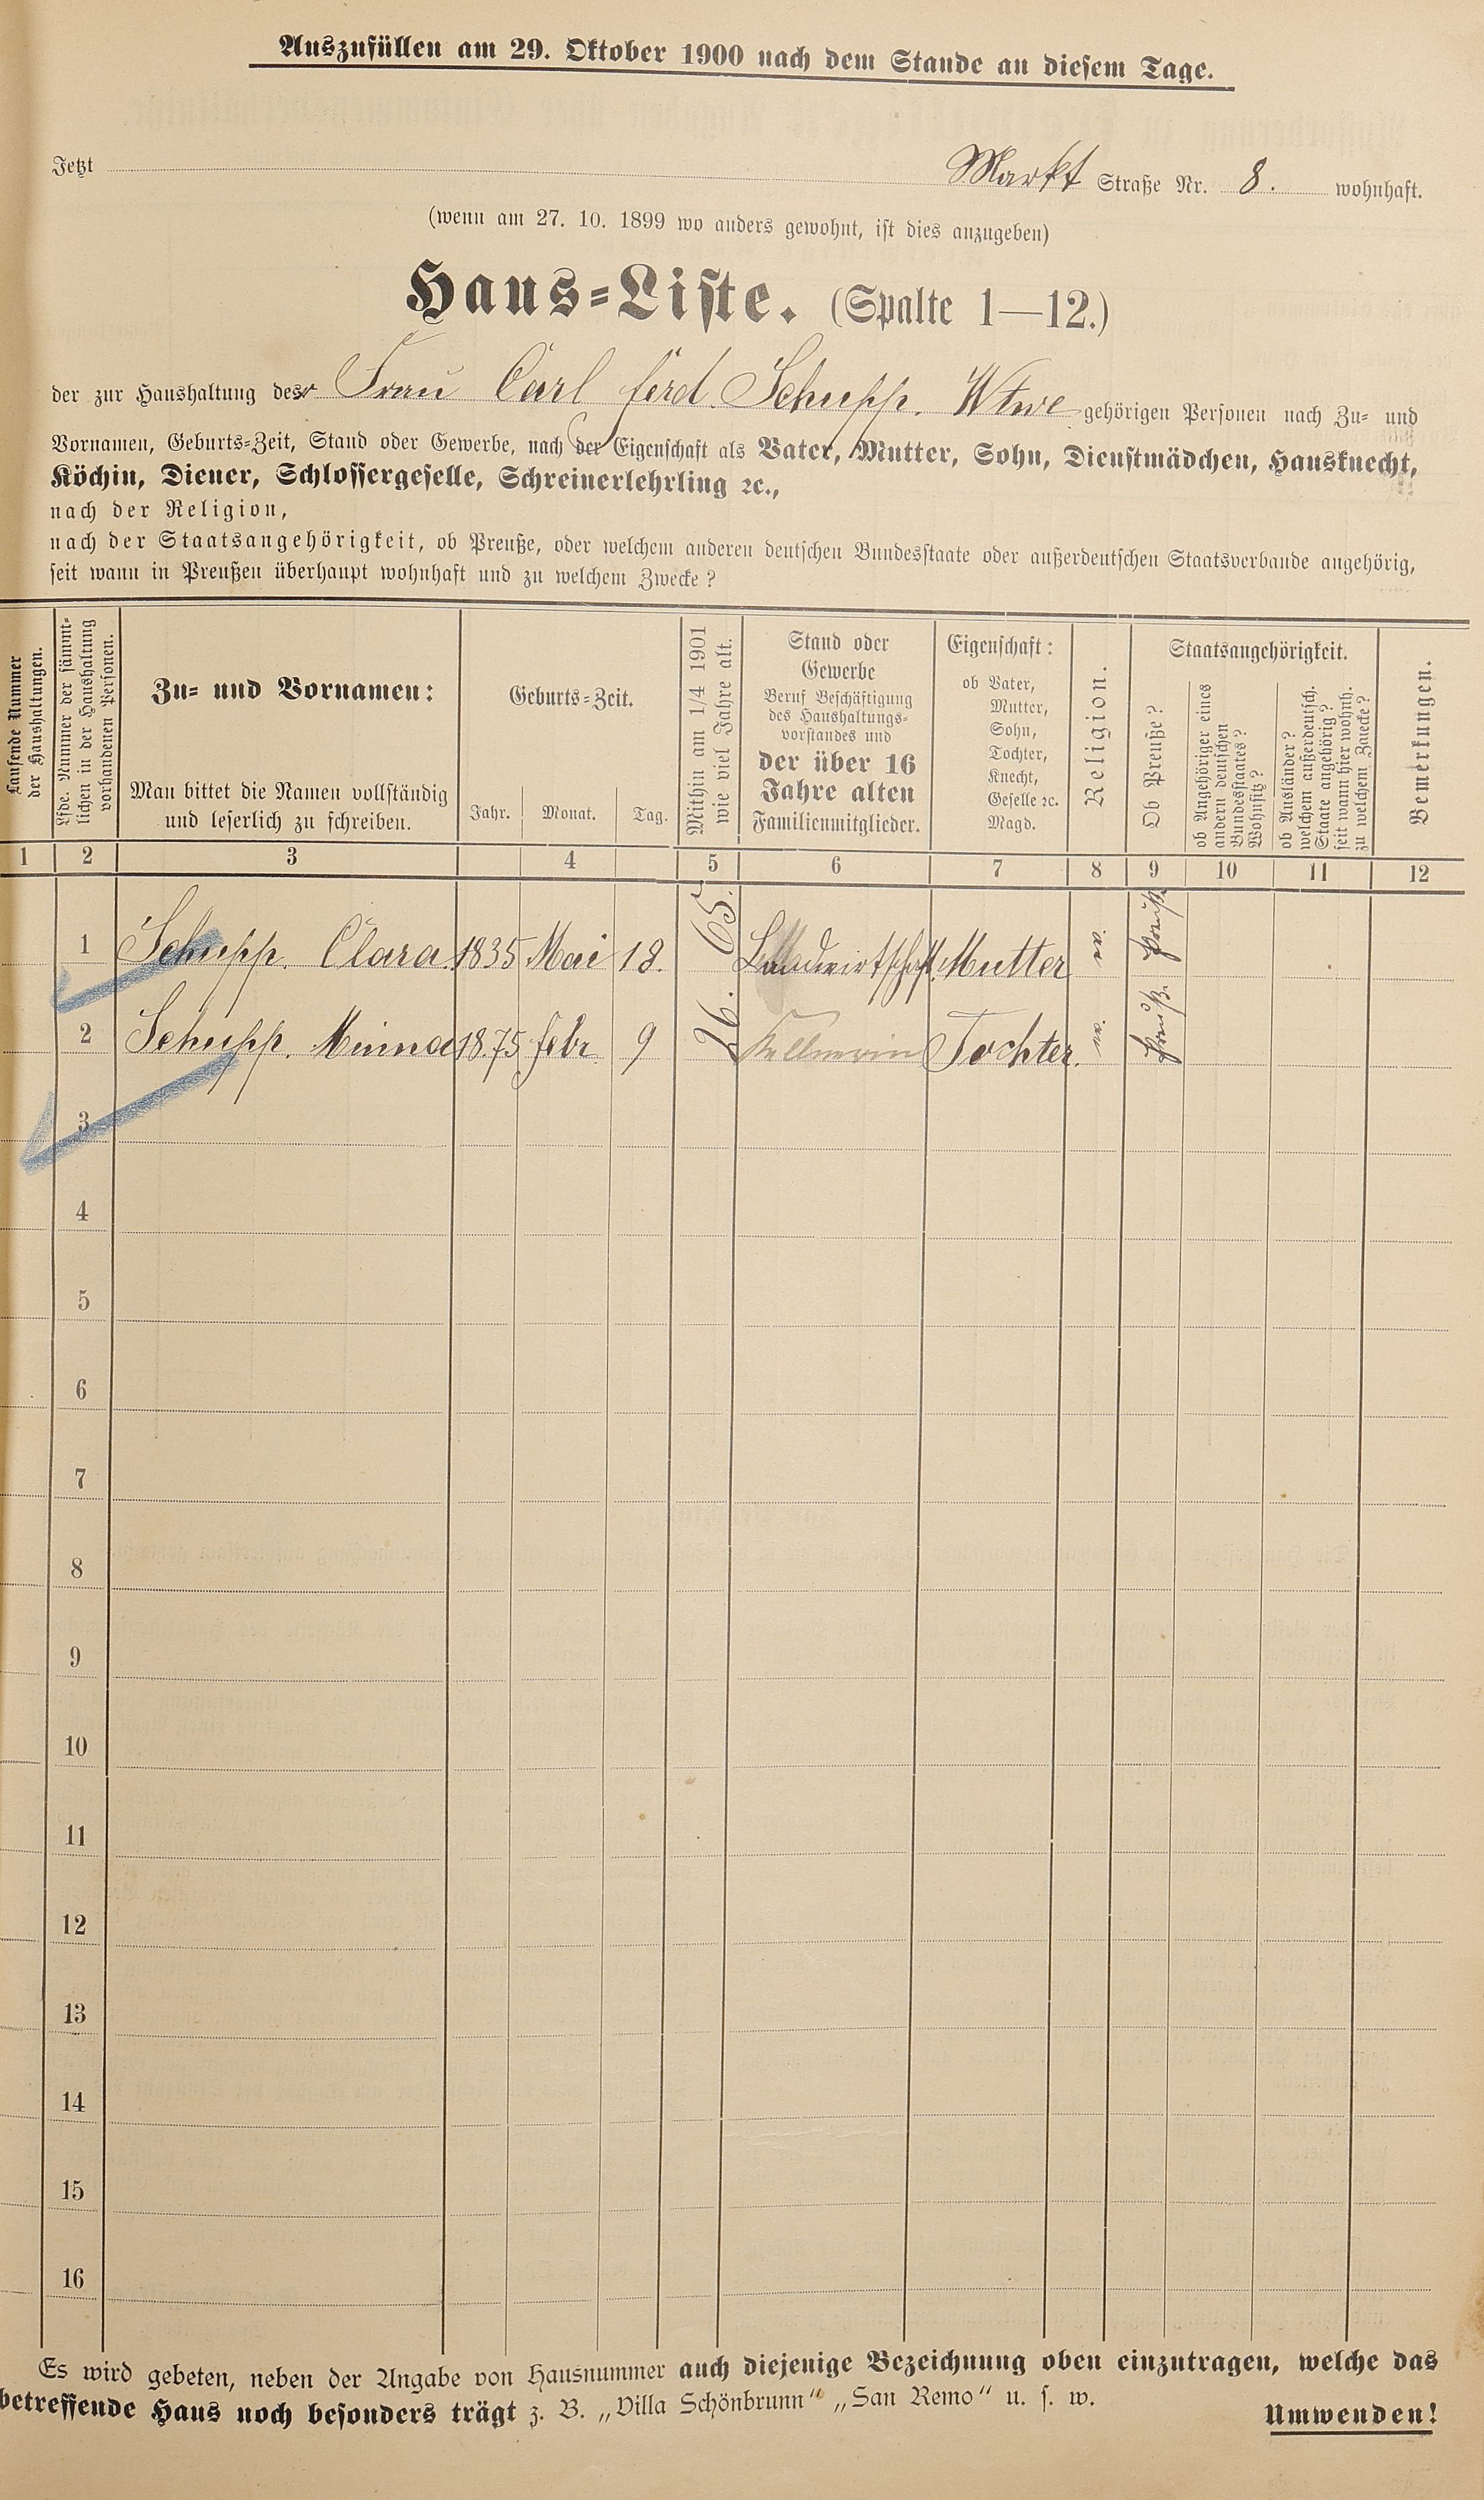 Auszufüllen am 29. Oktober 1900 nach dem Stande an diesem Tage.
Jetzt Markt Straße Nr. 8. wohnhaft.
(wenn am 27. 10. 1899 wo anders gewohnt, ist dies anzugeben)
Haus-Liste. (Spalte 1—12.)
der zur Haushaltung der Frau Carl Ferd. Schupp. Wtwe gehörigen Personen nach Zu- und
Vornamen, Geburts-Zeit, Stand oder Gewerbe, nach der Eigenschaft als Vater, Mutter, Sohn, Dienstmädchen, Hausknecht,
Köchin, Diener, Schlossergeselle, Schreinerlehrling ꝛc.,
nach der Religion,
nach der Staatsangehörigkeit, ob Preuße, oder welchem anderen deutschen Bundesstaate oder außerdeutschen Staatsverbande angehörig,
seit wann in Preußen überhaupt wohnhaft und zu welchem Zwecke?
Laufende Nummer
der Haushaltungen.
Lfde. Nummer der sämmt-
lichen in der Haushaltung
vorhandenen Personen.
Zu- und Vornamen:
Man bittet die Namen vollständig
und leserlich zu schreiben.
Geburts-Zeit.
Jahr. Monat. Tag.
Mithin am 1/4 1901
wie viel Jahre alt.
Stand oder
Gewerbe
Beruf Beschäftigung
des Haushaltungs-
vorstandes und
der über 16
Jahre alten
Familienmitglieder.
Eigenschaft:
ob Vater,
Mutter,
Sohn,
Tochter,
Knecht,
Geselle ꝛc.
Magd.
Religion.
Staatsangehörigkeit.
Ob Preuße?
ob Angehöriger eines
andern deutschen
Bundesstaates?
Wohnsitz?
ob Ausländer?
welchem außerdeutsch.
Staate angehörig?
seit wann hier wohnh.
zu welchem Zwecke?
Bemerkungen.
1 2 3 4 5 6 7 8 9 10 11 12
1 Schupp. Clara. 1835 Mai 18. 65. Landwirtschaft. Mutter Preuß.
2 Schupp. Minna 1875 Febr 9 26. Kellnerin Tochter. Preuß.
3
4
5
6
7
8
9
10
11
12
13
14
15
16
Es wird gebeten, neben der Angabe von Hausnummer auch diejenige Bezeichnung oben einzutragen, welche das
betreffende Haus noch besonders trägt z. B. „Villa Schönbrunn“ „San Remo“ u. s. w.
Umwenden!